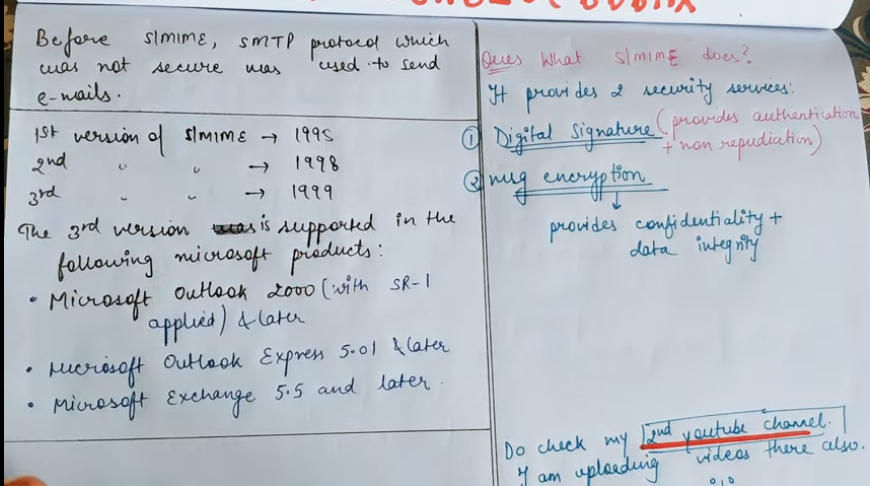 Before S/MIME, SMTP protocol which
was not secure was used to send
e-mails.
1st version of S/MIME → 1995
2nd " " → 1998
3rd " " → 1999
The 3rd version is supported in the
following microsoft products:
• Microsoft Outlook 2000 (with SR-1
applied) & later
• Microsoft Outlook Express 5.01 & later
• Microsoft Exchange 5.5 and later.
Ques What S/MIME does?
It provides 2 security services:
① Digital Signature (provides authentication
+ non repudiation)
② msg encryption
↓
provides confidentiality +
data integrity
Do check my 2nd youtube channel.
I am uploading videos there also.